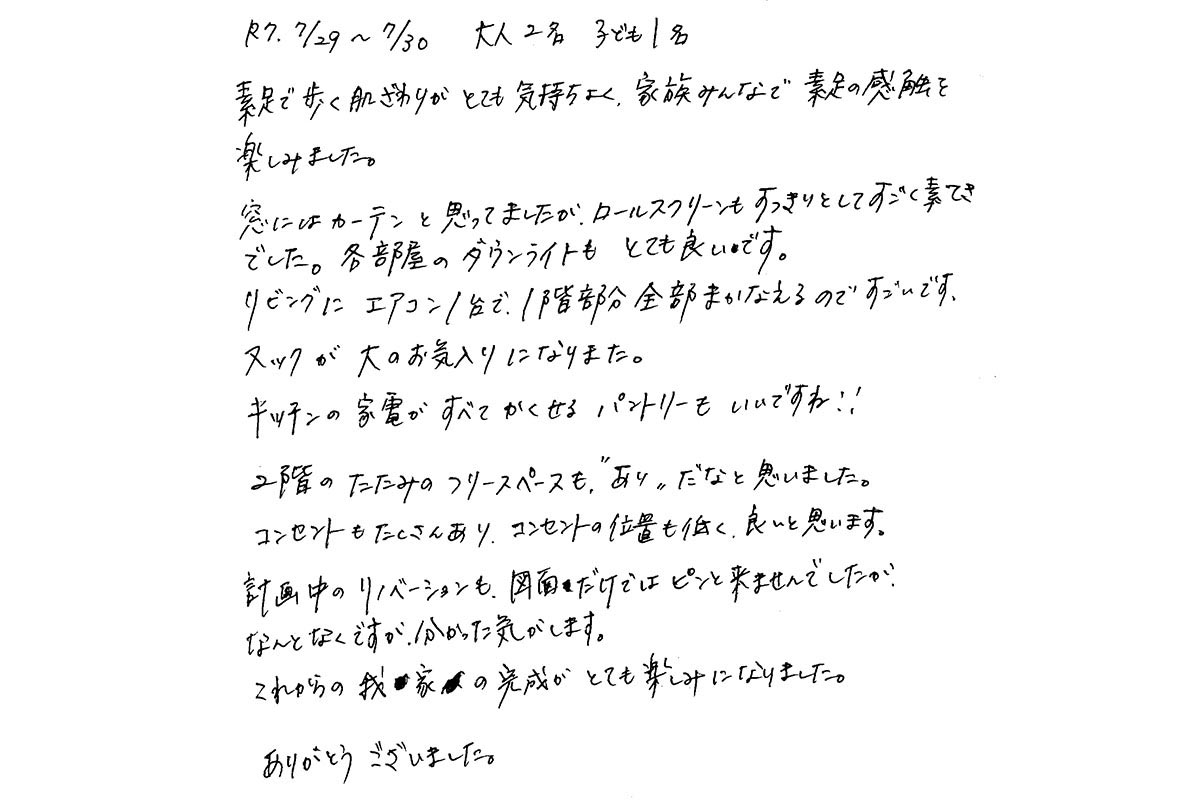 R7. 7/29～7/30 大人2名 子ども1名
素足で歩く肌ざわりがとても気持ちよく、家族みんなで素足の感触を
楽しみました。
窓にはカーテンと思ってましたが、ロールスクリーンもすっきりとしてすごく素てき
でした。各部屋のダウンライトもとても良いです。
リビングにエアコン1台で、1階部分全部まかなえるのですごいです、
ヌックが大のお気入りになりました。
キッチンの家電がすべてかくせるパントリーもいいですね!!
2階のたたみのフリースペースも、"あり"だなと思いました。
コンセントもたくさんあり、コンセントの位置も低く、良いと思います。
計画中のリノベーションも、図面だけではピンと来ませんでしたが、
なんとなくですが、分かった気がします。
これからの我家の完成がとても楽しみになりました。
ありがとうございました。